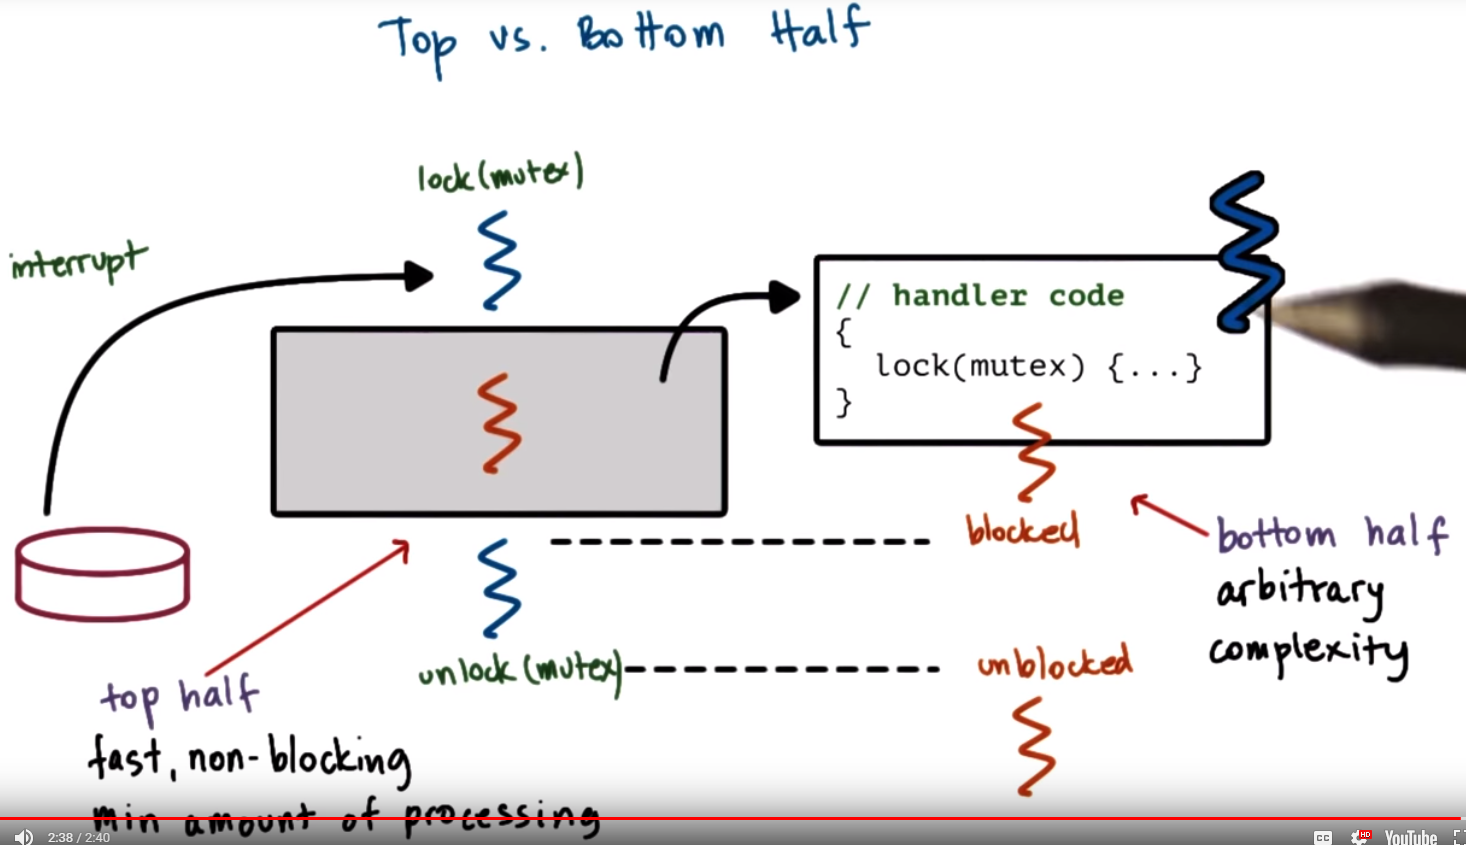 Top vs. Bottom Half
lock(mutex)
interrupt
// handler code
{
lock(mutex) {...}
}
blocked
bottom half
arbitrary
complexity
unlock(mutex)
unblocked
top half
fast, non-blocking
min amount of processing
2:38 / 2:40
CC
HD
YouTube